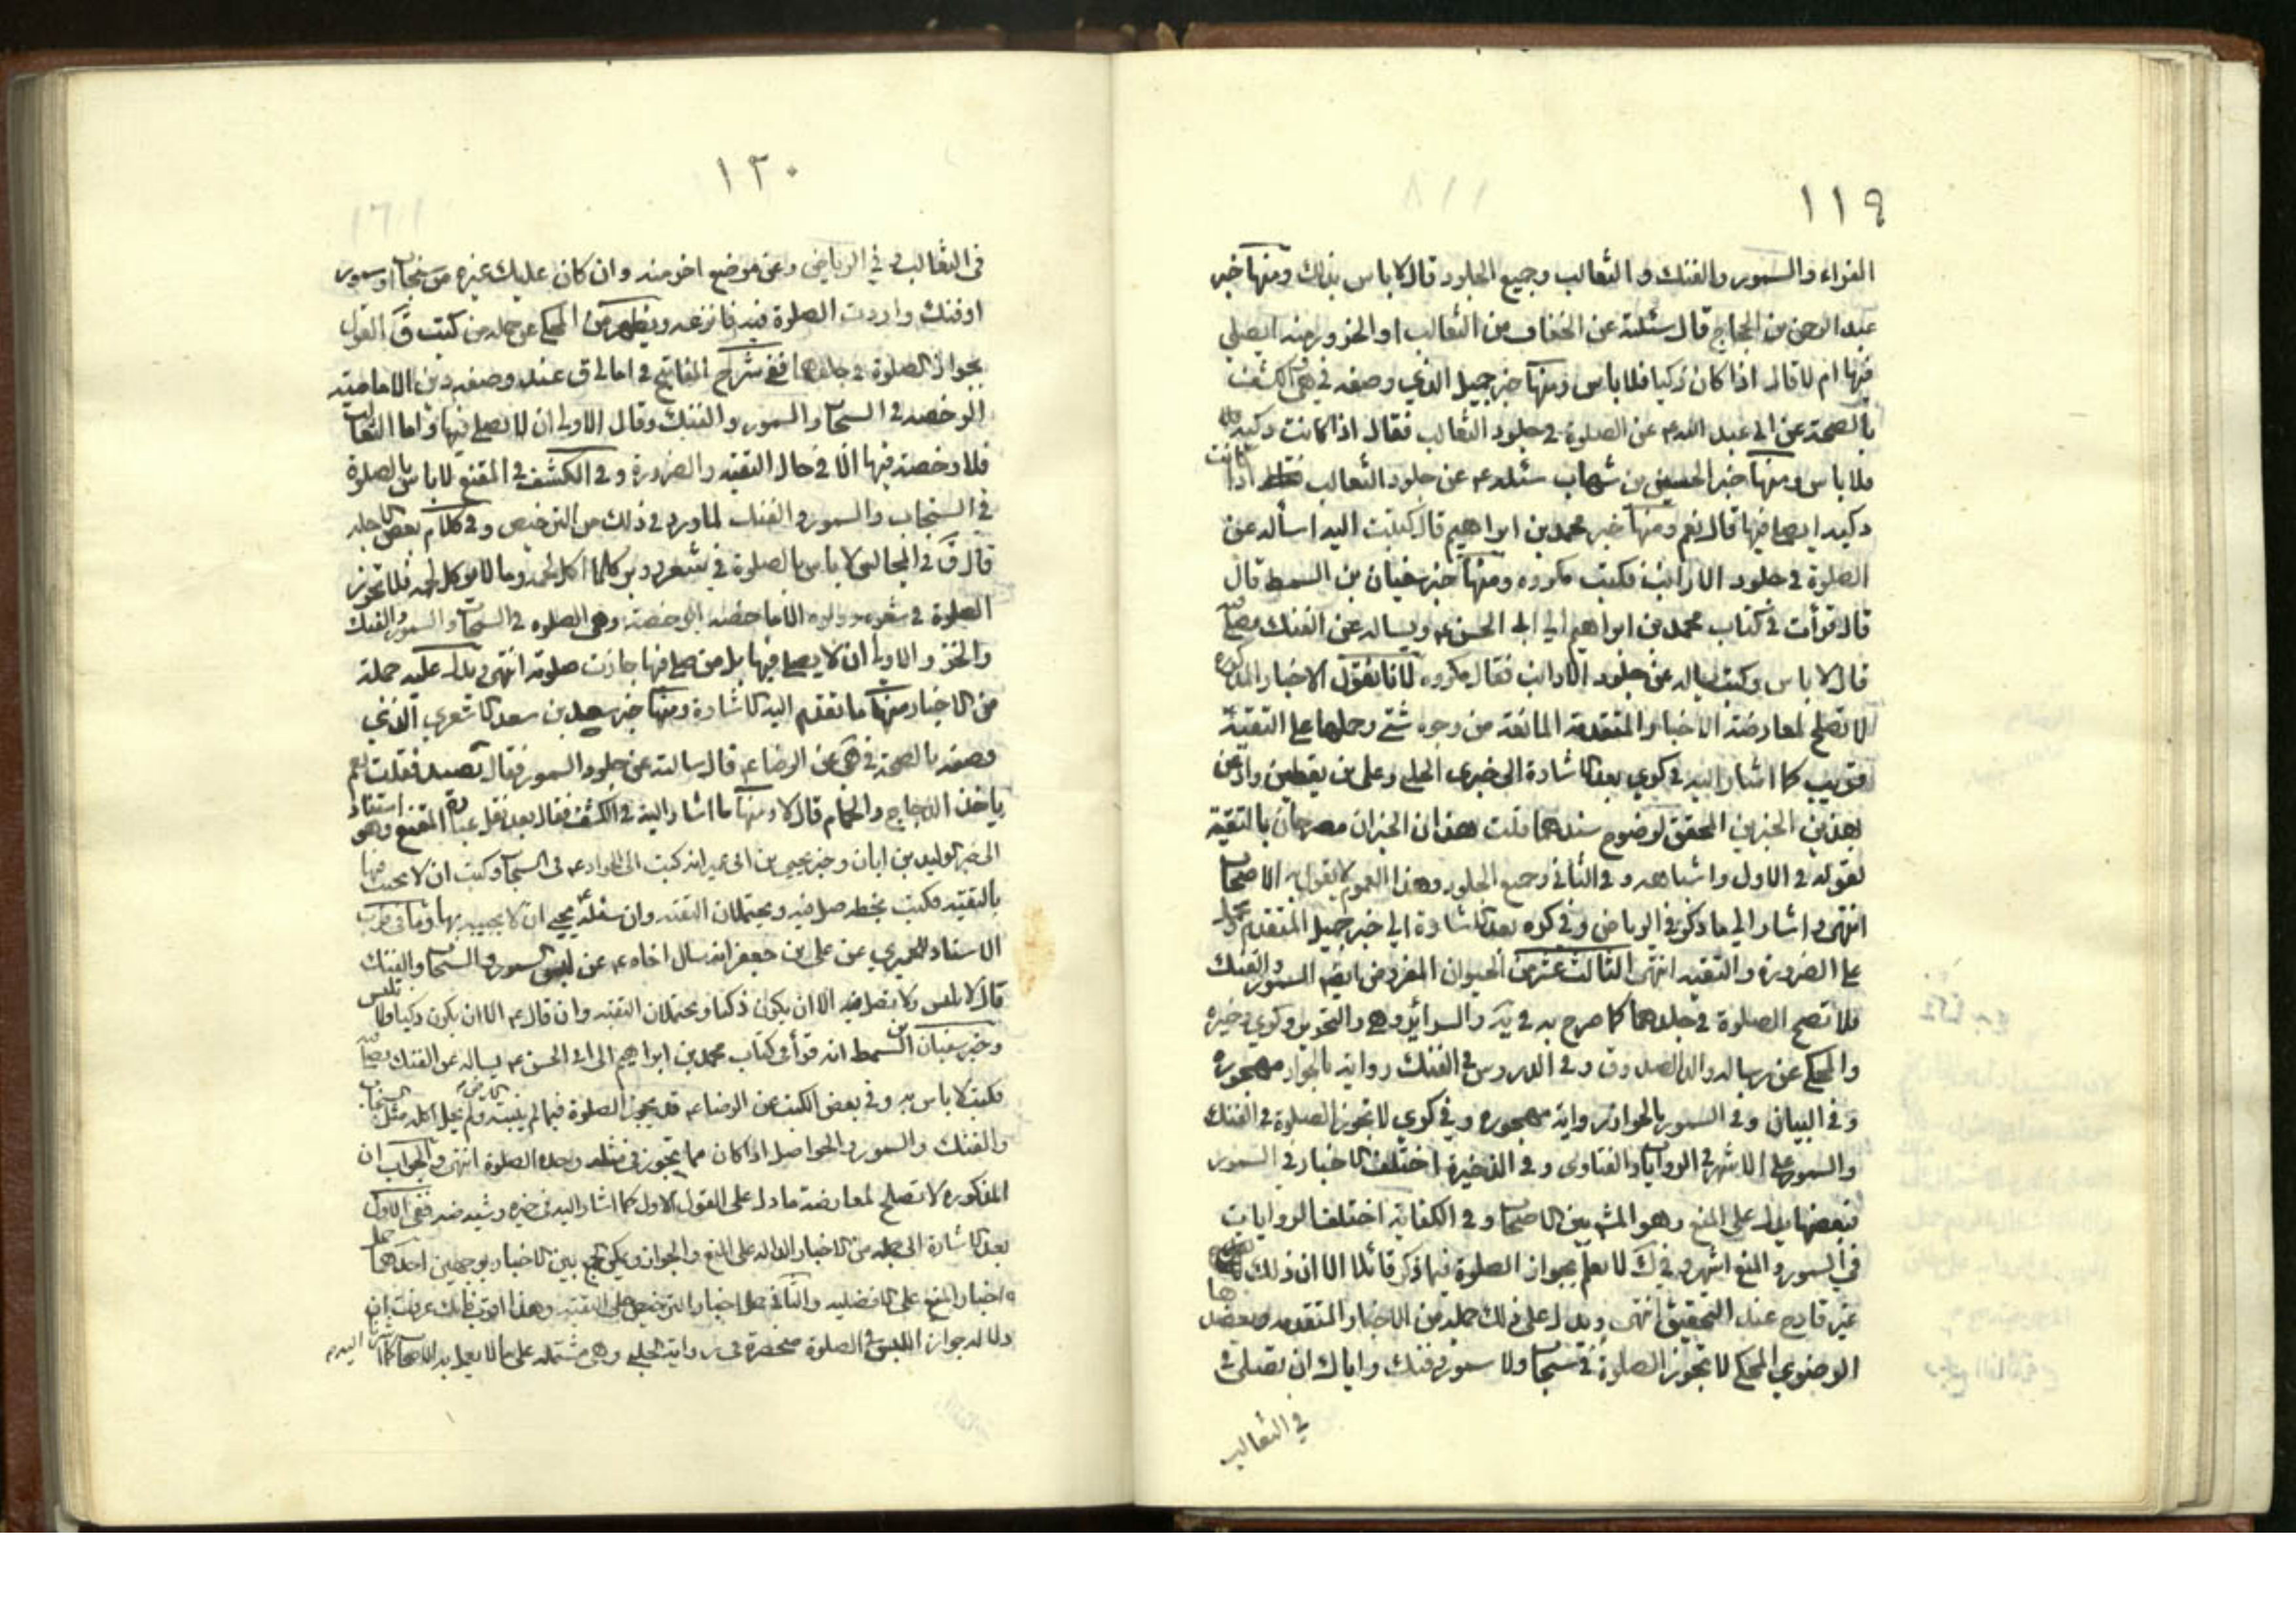 ١١٩
الفراء والسمور والفنك والثعالب وجميع الجلود قال لا باس بذلك ومنها خبر
عبد الرحمن بن الحجاج قال سئلته عن الخفاف من الثعالب او الخز ومنه ايصلى
فيها ام لا قال اذا كان ذكيا فلا باس ومنها خبر جميل الذي وصفه في الكشف
بالصحة عن ابى عبد الله ع عن الصلوة فى جلود الثعالب فقال اذا كانت ذكيه
فلا باس ومنها خبر الحسين بن شهاب سئله ع عن جلود الثعالب اذا كانت
ذكيه ايصلى فيها قال نعم ومنها خبر محمد بن ابراهيم قال كتبت اليه اسأله عن
الصلوة فى جلود الارانب فكتب مكروه ومنها خبر سفيان بن السمط قال
قال قرأت فى كتاب محمد بن ابراهيم الى ابى الحسن ع ويساله عن الفنك يصلى فيه
قال لا باس وكتب يساله عن جلود الارانب فقال مكروه لانا نقول الاخبار المذكورة
لا تصلح لمعارضة الاخبار المتقدمة المانعة من وجوه شتى وحملها على التقية
قريب كما اشار اليه فى كرى بعد الاشارة الى خبرى الحلبى وعلى بن يقطين
بهذين الخبرين المحقق لوضوح سندهما قلت هذان الخبران مصرحان بالتقية
لقوله فى الاول واشباهه وفى الثانى وجميع الجلود وهذا العموم لا يقول به الاصحاب
انتهى واشار الى ما ذكر فى الرياض وفى كره بعد الاشارة الى خبر جميل المتقدم
على الضرورة والتقيه انتهى الثالث عشر من الحيوان المفروض ايضا السمور والفنك
فلا تصح الصلوة فى جلدهما كما صرح به فى يه والسرائر وهى والتحرير وكرى وخيره
والمحكى عن رساله والد الصدوق وفى الدروس فى الفنك رواية بالجواز مهجوره
وفى البيان وفى السمور بالجواز رواية مهجوره وفى كرى لا تجوز الصلوة فى الفنك
والسمور على الاشهر فى الروايات والفتاوى وفى الذخيرة اختلف الاخبار فى السمور
فبعضها يدل على المنع وهو المش بين الاصحاب وفى الكفاية اختلفت الروايات
فى السمور والمنع اشهر وفى ك لا نعلم بجواز الصلوة فيما ذكر قائلا الا ان ذلك
غير قادح عند التحقيق انتهى ويدل على ذلك جملة من الاخبار المتقدمه ويعضد
الرضوى المحكى لا تجوز الصلوة فى سنجاب ولا سمور وفنك واياك ان تصلى
فى الثعالب
١٢٠
فى الثعالب وفى الرياض وعن موضع اخر منه وان كان عليك غيره من سنجاب او سمور
او فنك واردت الصلوة فيه فانزعه ويظهر من المحكى عن جمله من كتب ق القول
بجواز الصلوة فى جلدهما ففى شرح المفاتيح فى امالى ق عند وصفه دين الاماميه
الرخصه فى السنجاب والسمور والفنك وقال الاولى ان لا يصلى فيها واما الثعالب
فلا رخصة فيها الا فى حال التقيه والضرورة وفى الكشف فى المقنع لا باس بالصلوة
فى السنجاب والسمور والفنك لما ورد فى ذلك من الترخيص وفى كلام بعض الاجله
قال ق فى المجالس لا باس بالصلوة فى شعر ووبر كلما اكل لحمه وما لا يوكل لحمه فلا تجوز
الصلوة فى شعره ووبره الا ما خصته الرخصة وهى الصلوه فى السنجاب والسمور والفنك
والخز والاولى ان لا يصلى فيها بل من صلى فيها جازت صلوته انتهى ويدل عليه جملة
من الاخبار منها ما تقدم اليه الاشارة ومنها خبر سعد بن سعد الاشعرى الذى
وصفه بالصحة فى هى عن الرضا ع قال سالته عن جلود السمور فقال تصيد فقلت نعم
ياخذ الدجاج والحمام قال لا ومنها ما اشار اليه فى الكشف فقال بعد نقل عبارة المقنع وهو استناد
الى خبر الوليد بن ابان وخبر يحيى بن ابى عمير انه كتب الى الجواد ع فى السنجاب وكتب ان لا يجيب فيها
بالتقيه فكتب بخطه صل فيه ويحتملان التقيه وان سئله يحيى ان لا يجيبه بها وما فى قرب
الاسناد للحميرى عن على بن جعفر انه سال اخاه ع عن لبس السمور والسنجاب والفنك
قال لا يلبس ولا يصل فيه الا ان يكون ذكيا ويحتملان التقيه وان قال ع الا ان يكون ذكيا ولا تلبس
وخبر سفيان بن السمط انه قرأ فى كتاب محمد بن ابراهيم الى ابى الحسن ع يساله عن الفنك يصلى فيه
فكتب لا باس به وفى بعض الكتب عن الرضا ع قد يجوز الصلوة فيما لم ينبته الارض ولم يحل اكله مثل السنجاب
والفنك والسمور والحواصل اذا كان مما يجوز فى مثله وحده الصلوة انتهى والجواب ان
المذكوره لا تصلح لمعارضة ما دل على القول الاول كما اشار اليه فى خيره وشيد ضه ففى الاول
بعد الاشارة الى جمله من الاخبار الداله على المنع والجواز ويمكن الجمع بين الاخبار بوجهين احدهما حمل
اخبار المنع على الافضليه والثانى حمل اخبار الترخيص على التقيه وهذا اقرب فانك عرفت ان
دلاله جواز اللبس فى الصلوة منحصرة فى رواية الحلبى وهى مشتمله على ما لا يعمل به الاصحاب كما اشرنا اليه